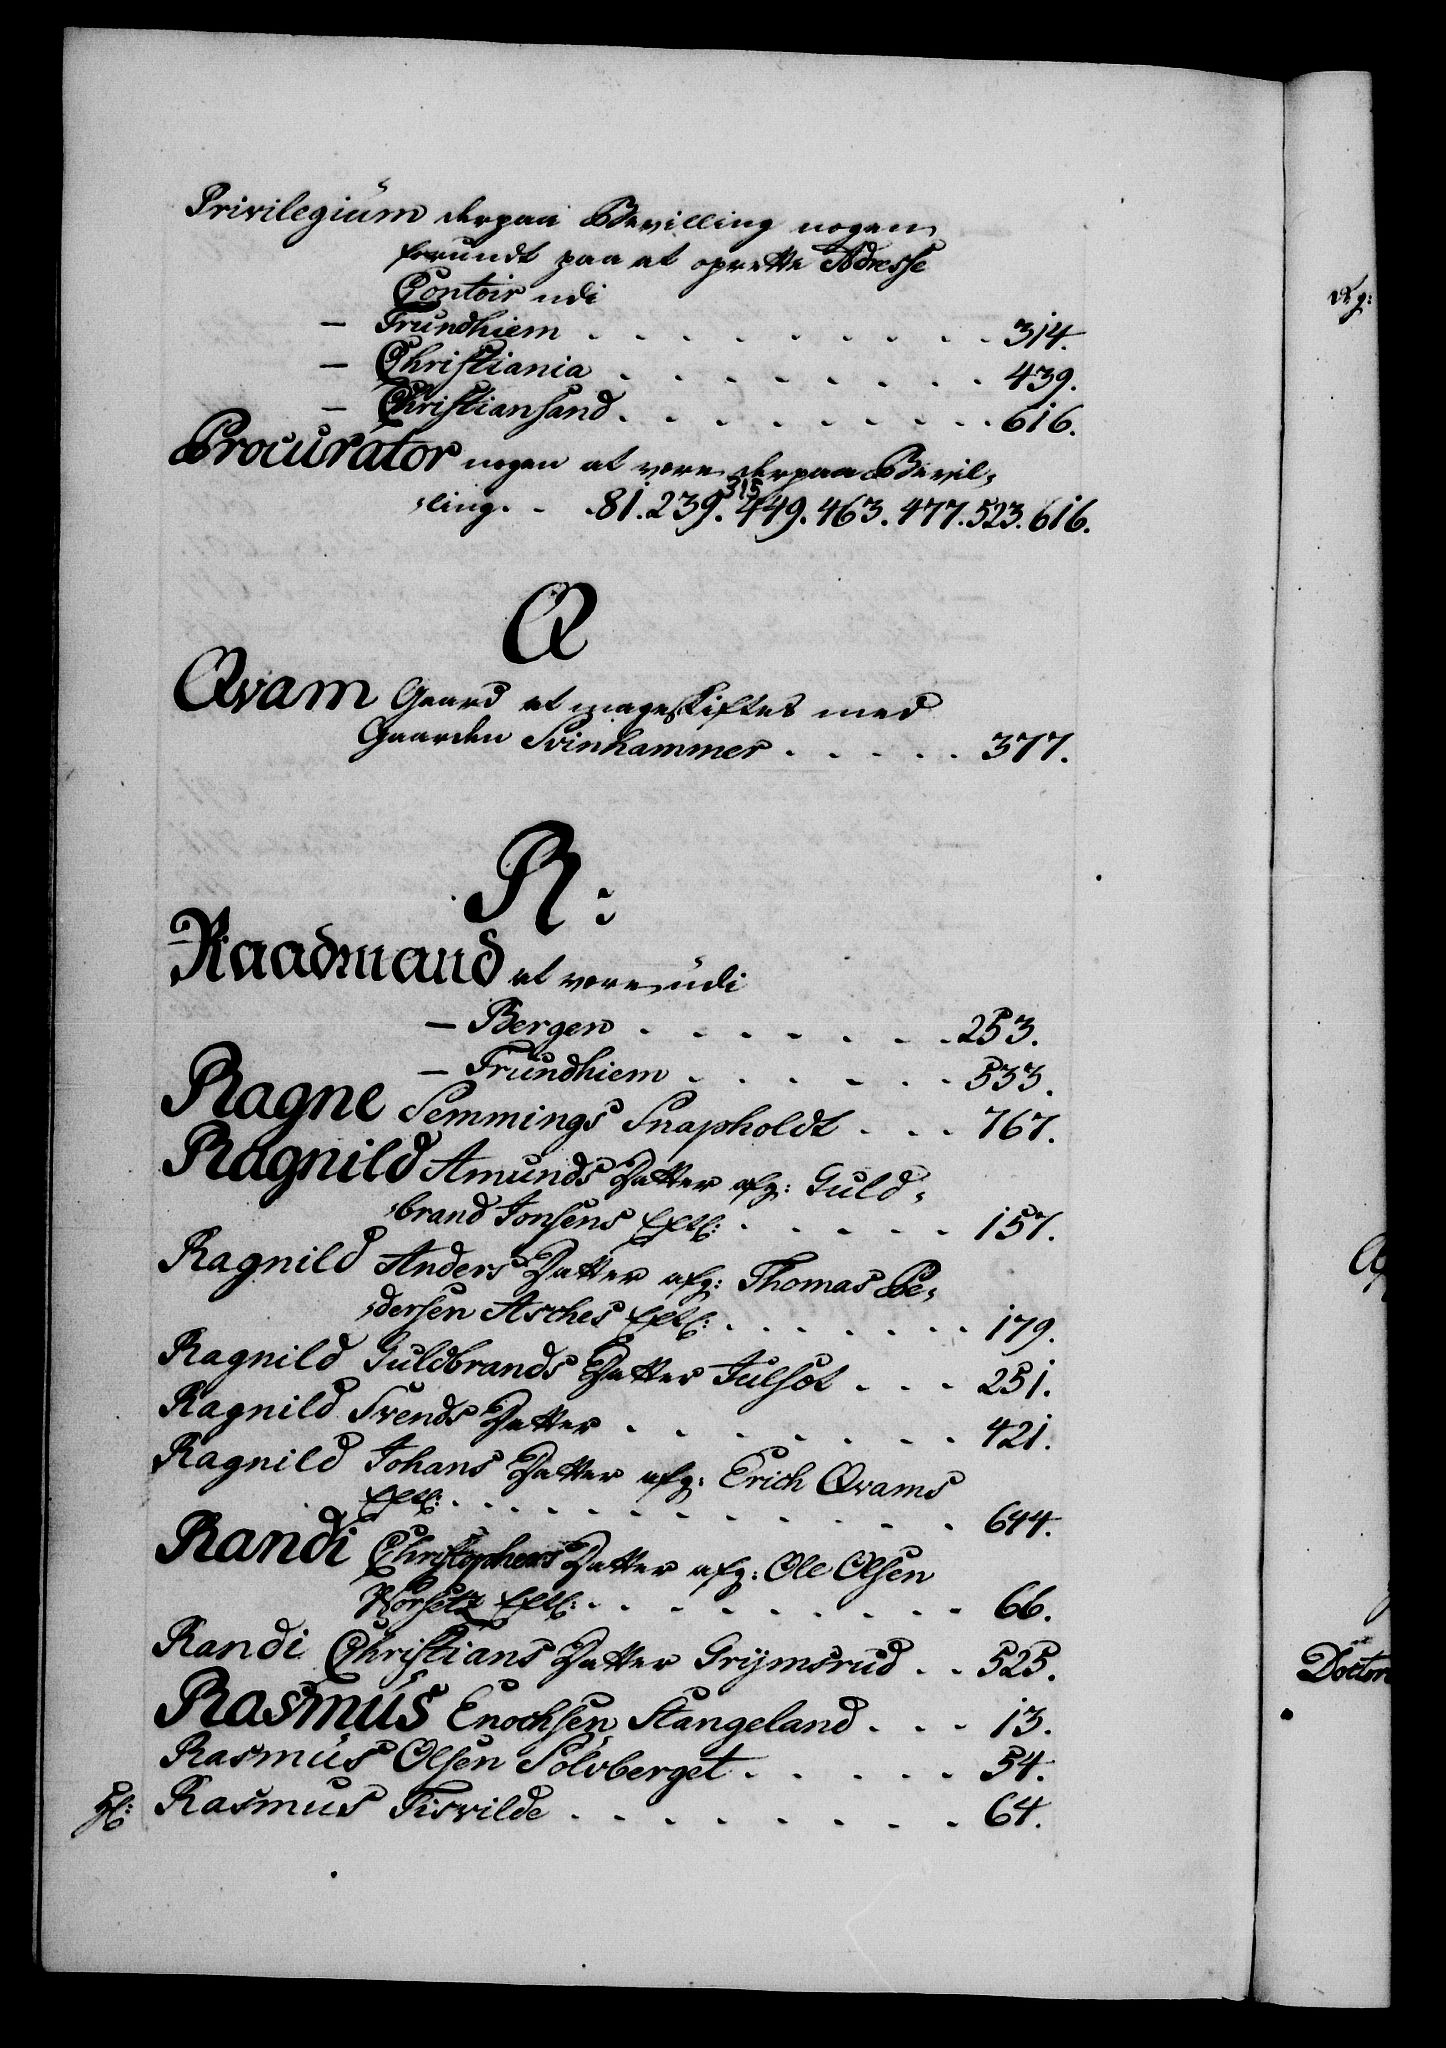 Privilegium derpaa Bevilling nogen
forundt paa at oprette Adresse
Contoir udi
— Trundhiem . . . . . . . . . 314.
— Christiania . . . . . . . . 439.
— Christiansand . . . . . . . . 616.
Procurator nogen at være derpaa Bevil-
ling. . . 81. 239. 315 449. 463. 477. 523. 616.
Q
Qvam Gaard at mageskiftes med
Gaarden Svinhammer . . . . . 377.
R:
Raadmand at være udi
— Bergen . . . . . . . 253.
— Trundhiem . . . . . . 533.
Ragne Semmings Snapholdt . . . 767.
Ragnild Amunds Datter afg: Guld-
brand Jonsens Efterl: . . . . . 157.
Ragnild Anders Datter afg: Thomas Pe-
dersen Asches Efterl: . . . . . . . 179.
Ragnild Guldbrands Datter Julsot . . . 251.
Ragnild Svends Datter . . . . . . . 421.
Ragnild Johans Datter afg: Erich Qvams
Efterl: . . . . . . . . . . . . 644.
Randi Christophers Datter afg: Ole Olsen
Horsetz Efterl: . . . . . . . . . 66.
Randi Christians Datter Grijmsrud . . 525.
Rasmus Enochsen Stangeland . . . 13.
Rasmus Olsen Sölvberget . . . . . 54.
Rasmus Tisvilde . . . . . . . . 64.
Doctor